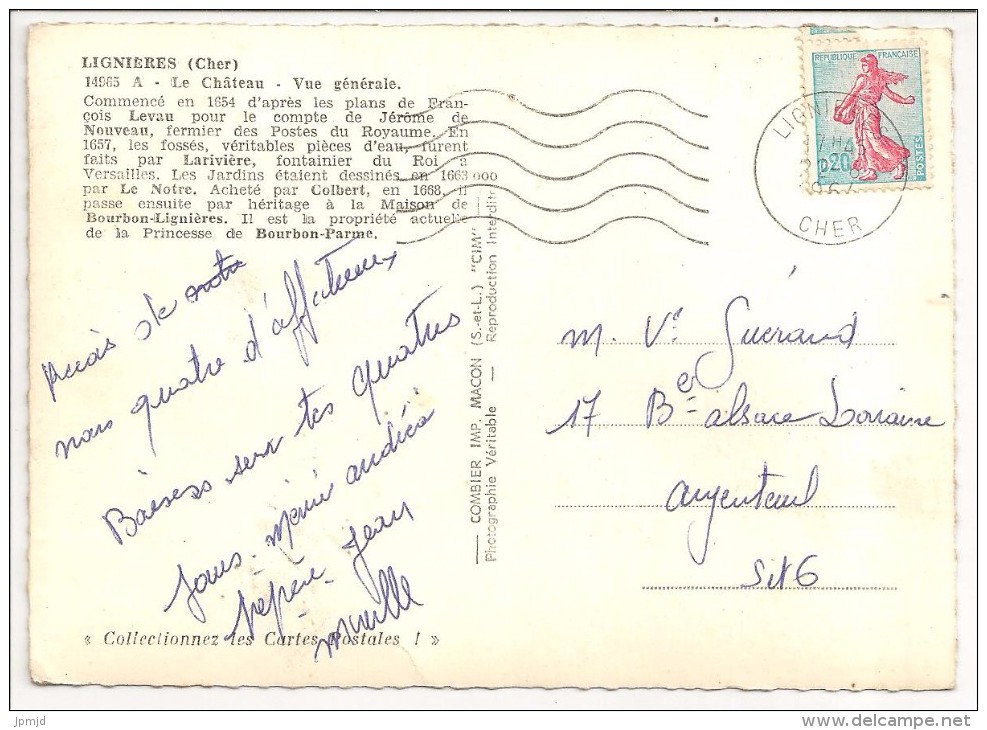 LIGNIÈRES (Cher)
14965 A - Le Château - Vue générale.
Commencé en 1654 d'après les plans de Fran-
çois Levau pour le compte de Jérôme de
Nouveau, fermier des Postes du Royaume. En
1657, les fossés, véritables pièces d'eau, furent
faits par Larivière, fontainier du Roi à
Versailles. Les Jardins étaient dessinés en 1663
par Le Notre. Acheté par Colbert, en 1668, il
passe ensuite par héritage à la Maison de
Bourbon-Lignières. Il est la propriété actuelle
de la Princesse de Bourbon-Parme.
de
nous quatre d'affectueux
Baisers sur tes quatres
Jous - mémé andréa
pépère Jean
« Collectionnez les Cartes Postales ! »
COMBIER IMP. MACON (S.-et-L.) "CIM"
Photographie Véritable — Reproduction Interdite
REPUBLIQUE FRANÇAISE
0,20
POSTES
CHER
M. Ve Guérand
17 Be alsace Lorraine
argenteuil
S&O
jpmjd
www.delcampe.net